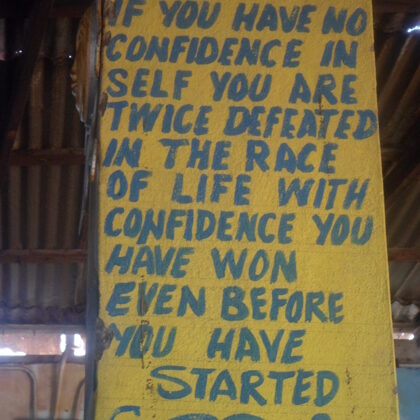 IF YOU HAVE NO
CONFIDENCE IN
SELF YOU ARE
TWICE DEFEATED
IN THE RACE
OF LIFE WITH
CONFIDENCE YOU
HAVE WON
EVEN BEFORE
YOU HAVE
STARTED